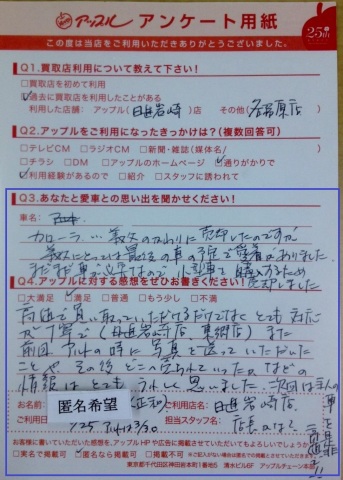 アップル アンケート用紙
25th
この度は当店をご利用いただきありがとうございました。
Q1.買取店利用について教えて下さい!
□買取店を初めて利用
☑過去に買取店を利用したことがある
利用した店舗:アップル(日進岩崎)店 その他(各務原店)
Q2.アップルをご利用になったきっかけは?(複数回答可)
□テレビCM □ラジオCM □新聞・雑誌(媒体名/ )
□チラシ □DM □アップルのホームページ ☑通りがかりで
☑利用経験があるので □紹介 □スタッフに誘われて
Q3.あなたと愛車との思い出を聞かせください!
車名:
カローラ… 義父のかわりに売却したのですが
義父にとっては最後の車の予定で愛着がありました。
まだまだ車で必要なので小型車を購入するため
売却しました
Q4.アップルに対する感想をぜひお書きください!
□大満足 ☑満足 □普通 □もう少し □不満
高価で買い取っていただけるだけでなくとても対応
が丁寧で(日進岩崎店、東郷店)また
前回の時に写真を送っていただいた
ことや その後どこで売られていたなどの
情報はとてもうれしく思いました。次回は主人の
車を是非
お名前
匿名希望
ご利用店名: 日進岩崎店
ご利用日
担当スタッフ名: 店長
お客様に書いていただいた感想を、アップルHPや広告に掲載させていただいてもよろしいでしょうか
□実名で掲載可 ☑匿名なら掲載可 □掲載不可 ※ご記入がない場合は匿名での掲載とさせていただきます。
東京都千代田区神田岩本町1番地5 清水ビル6F アップルチェーン本部